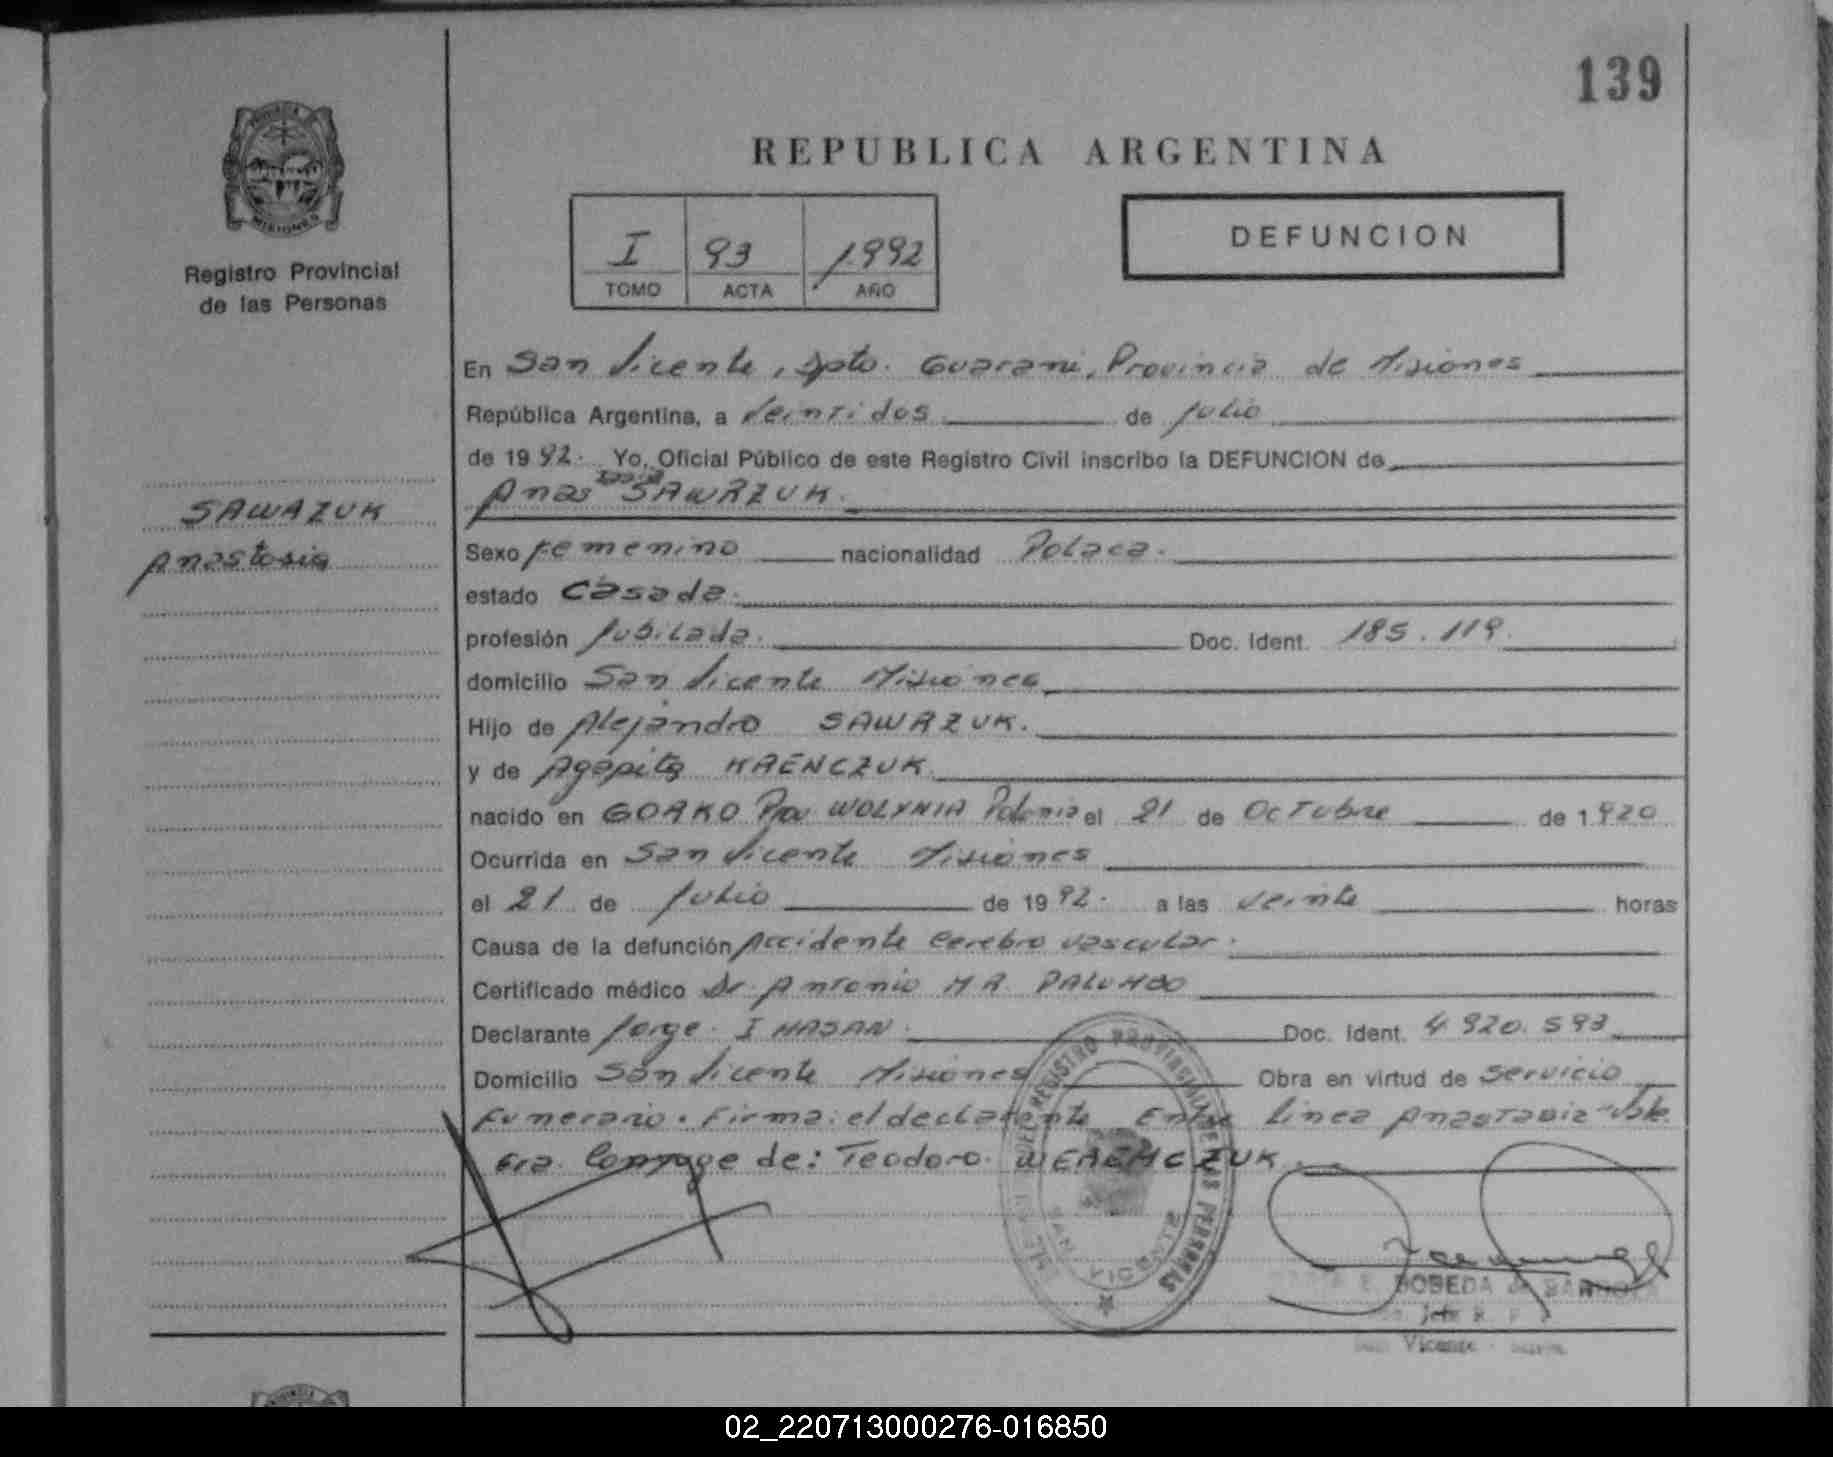 139
REPUBLICA ARGENTINA
PROVINCIA
MISIONES
Registro Provincial
de las Personas
I 93 1992
TOMO ACTA AÑO
DEFUNCION
SAWAZUK
Anastasia
En San Vicente, Dpto. Guarani, Provincia de Misiones
República Argentina, a Veintidos de Julio
de 1992. Yo, Oficial Público de este Registro Civil inscribo la DEFUNCION de
tasia
Anas SAWRZUK.
Sexo Femenino nacionalidad Polaca.
estado Casada.
profesión Jubilada. Doc. Ident. 185.119.
domicilio San Vicente Misiones
Hijo de Alejandro SAWRZUK.
y de Agapita KRENCZUK.
nacido en GORKO Prov WOLYNIA Polonia el 21 de OcTubre de 1920
Ocurrida en San Vicente Misiones
el 21 de Julio de 1992. a las Veinte horas
Causa de la defunción Accidente Cerebro vascular.
Certificado médico Dr. Antonio PALUMBO
Declarante Jorge. I HASAN. Doc. Ident. 4 920.593
Domicilio San Vicente Misiones Obra en virtud de Servicio
Funerario. Firma: el declarante Entre linea Anastasia-Vale.
Conyuge de: Teodoro. WEREMCZUK.
REGISTRO PROVINCIAL DE LAS PERSONAS
SAN VICENTE
E. BOBEDA de
Jefe R. P.
Vicente
02_220713000276-016850